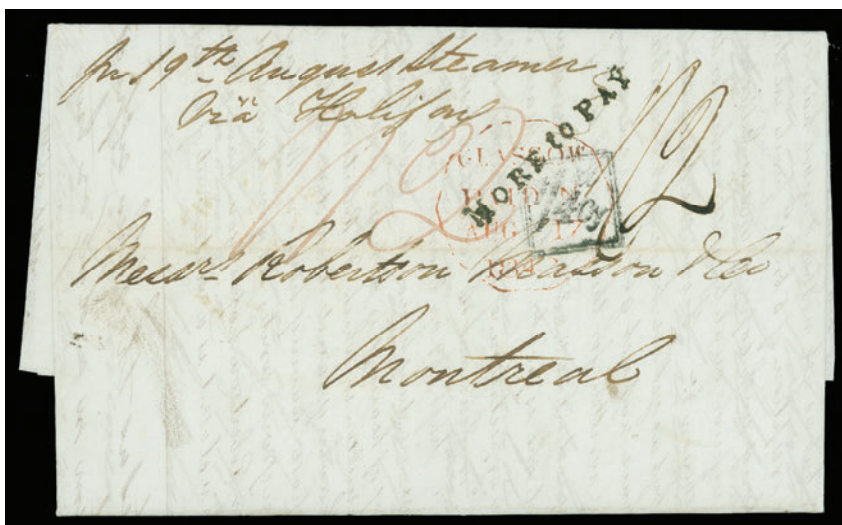 pr 19th August Steamer
Via Halifax
MORE to PAY
1/2
1/2
GLASGOW
PAID
AUG 17
Messrs Robertson Masson & Co
Montreal